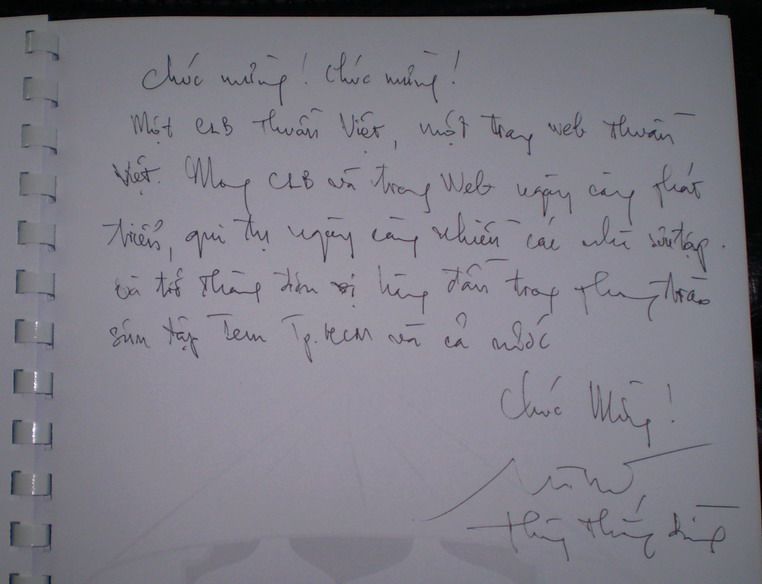 Chúc mừng! Chúc mừng!
Một CLB Thuần Việt, một trang web Thuần
Việt. Mong CLB và trang Web ngày càng phát
triển, qui tụ ngày càng nhiều các nhà sưu tập
và trở thành đơn vị hàng đầu trong phong trào
sưu tập Tem Tp.HCM và cả nước
Chúc Mừng!